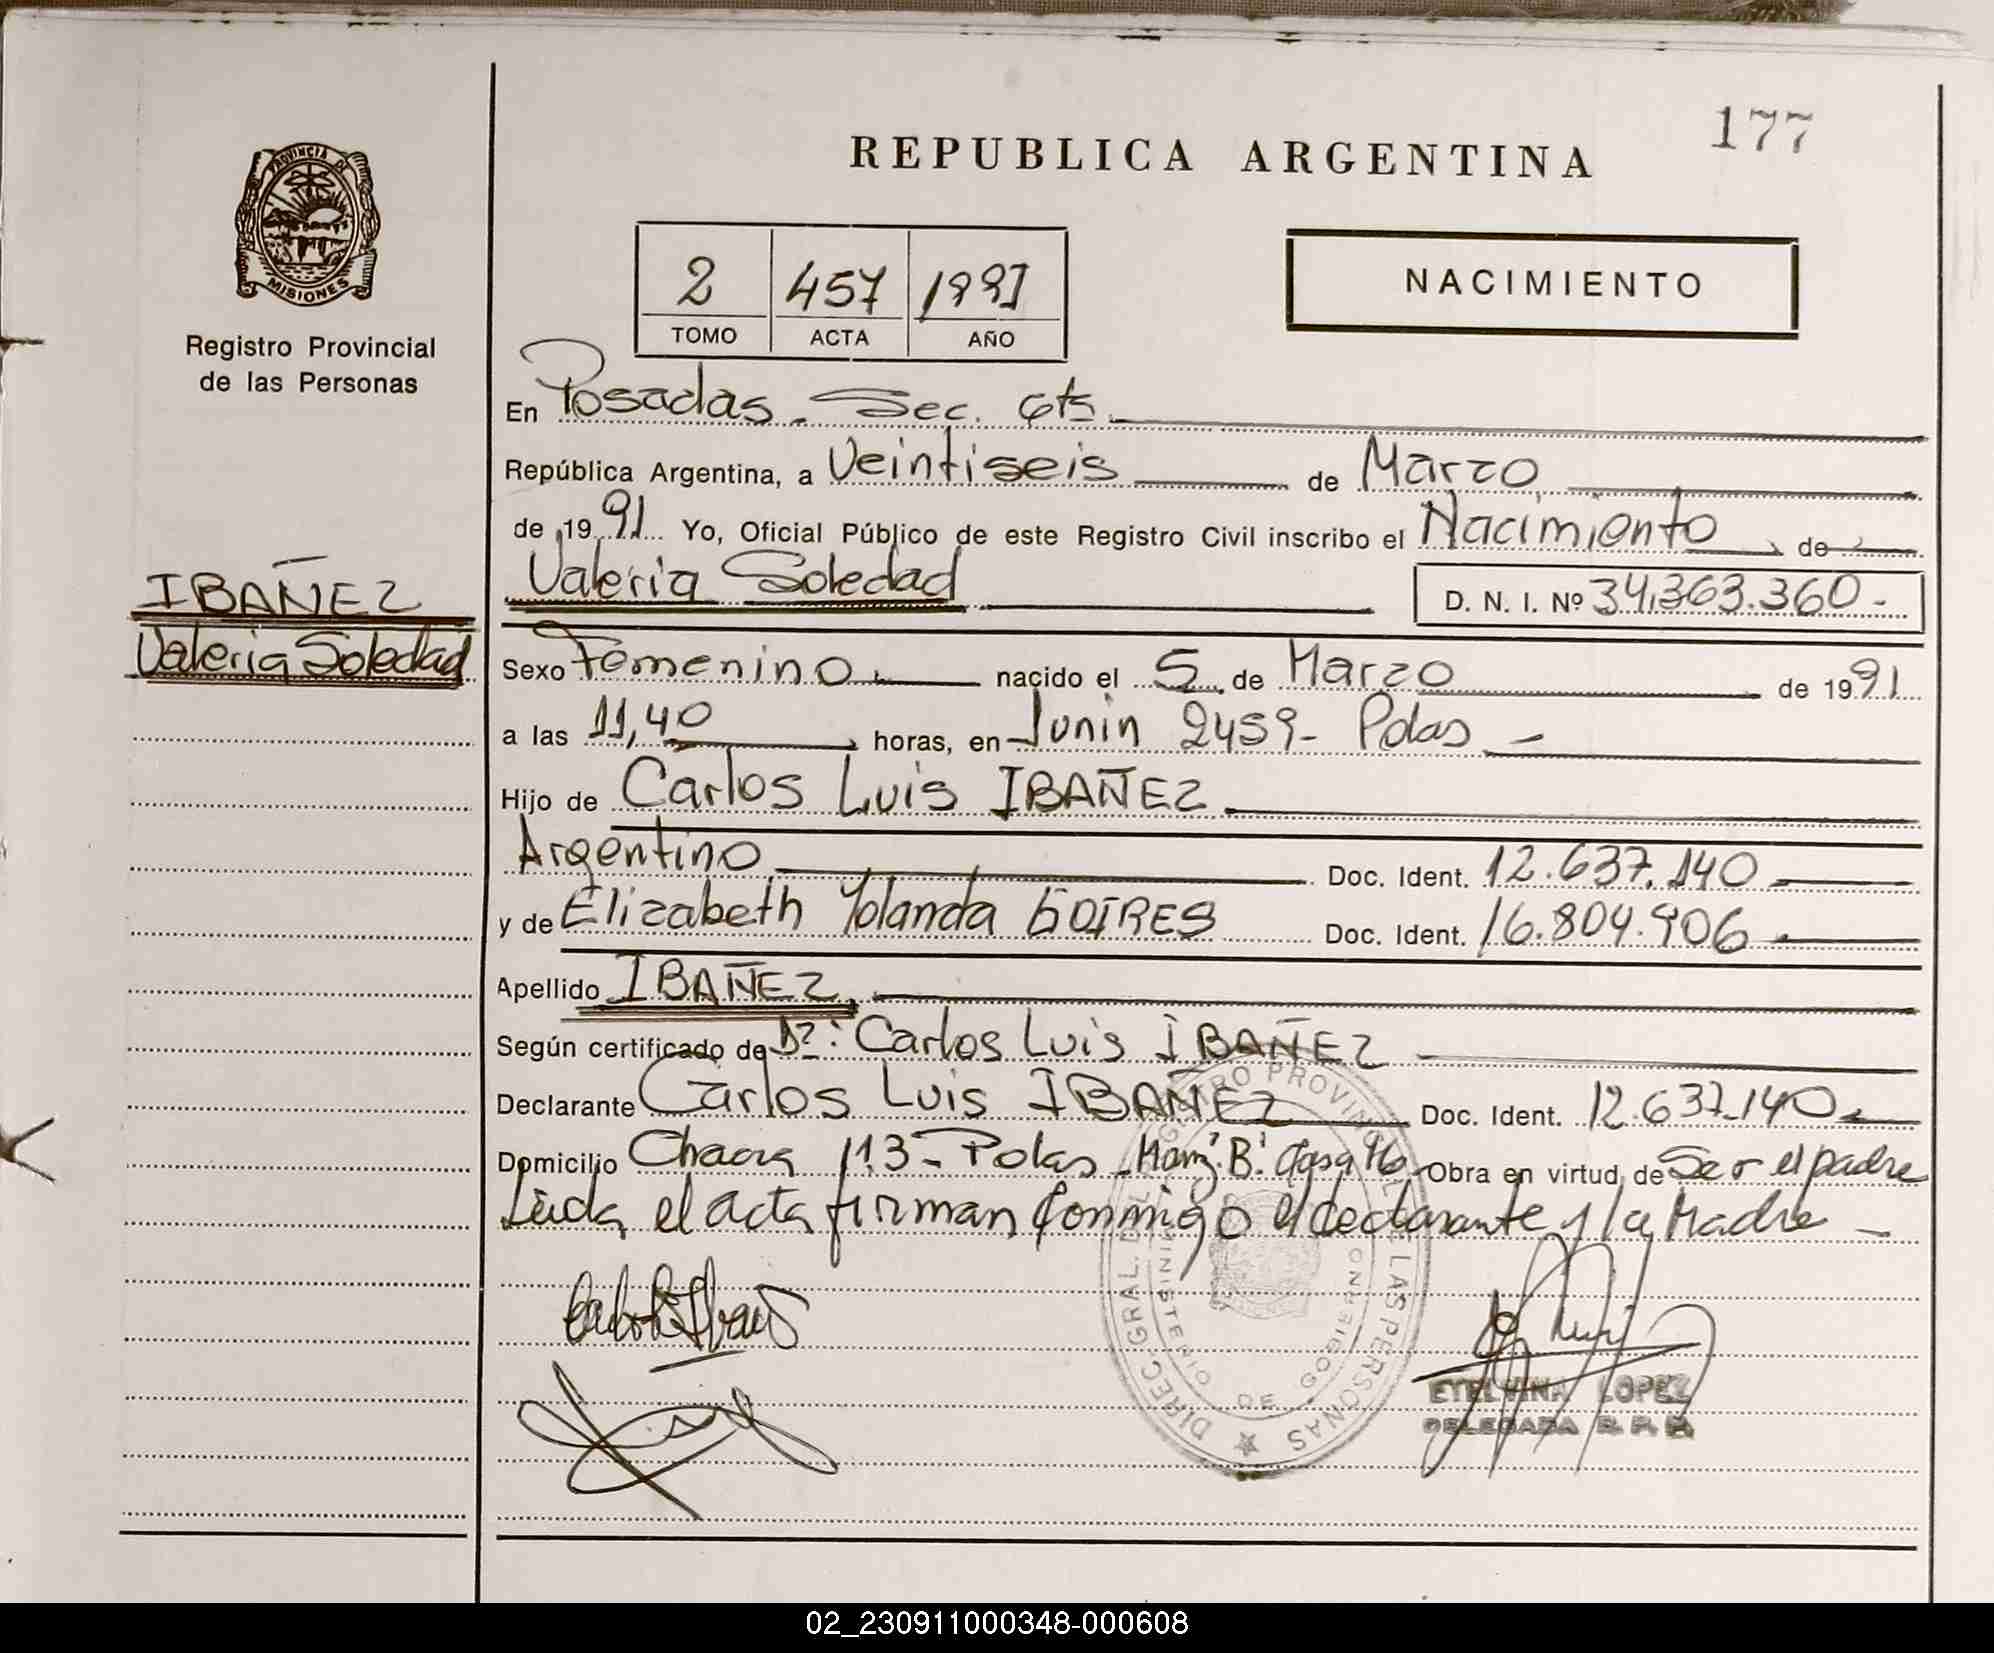 177
REPUBLICA ARGENTINA
PROVINCIA DE
MISIONES
Registro Provincial
de las Personas
2 457 1991
TOMO ACTA AÑO
NACIMIENTO
En Posadas - Sec. 6ta
República Argentina, a Veintiseis de Marzo
de 1991 Yo, Oficial Público de este Registro Civil inscribo el Nacimiento de
IBAÑEZ
Valeria Soledad
Valeria Soledad D. N. I. Nº 34.363.360.-
Sexo Femenino nacido el 5 de Marzo de 1991
a las 11,40 horas, en Junin 2459- Pdas -
Hijo de Carlos Luis IBAÑEZ
Argentino Doc. Ident. 12.637.140
y de Elizabeth Yolanda Doc. Ident. 16.804.906
Apellido IBAÑEZ
Según certificado de Dr: Carlos Luis IBAÑEZ
Declarante Carlos Luis IBAÑEZ Doc. Ident. 12.637.140
Domicilio Chacra 113 - Pdas - Manz. "B" Casa Obra en virtud de Ser el padre
Leida el acta firman conmigo el declarante y la Madre -
DIREC. GRAL. DEL REGISTRO PROVINCIAL DE LAS PERSONAS
MINISTERIO DE GOBIERNO
ETELVINA LOPEZ
DELEGADA R. P. P.
02_230911000348-000608